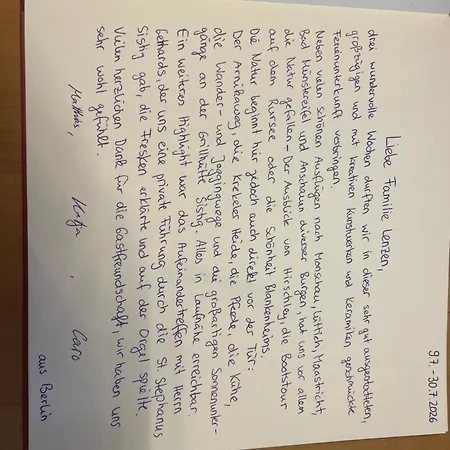 9.7.-30.7.2026
Liebe Familie Lenzen,
drei wundervolle Wochen durften wir in dieser sehr gut ausgestatteten,
großzügigen und mit kreativen Kunstwerken und Keramiken geschmückte
Ferienunterkunft verbringen.
Neben vielen schönen Ausflügen nach Monschau, Lüttich, Maastricht,
Bad Münstereifel und Anschauen diverser Burgen, hat uns vor allem
die Natur gefallen - Der Ausblick von Hirschley, die Bootstour
auf dem Rursee oder die Schönheit Blankenheims.
Die Natur beginnt hier jedoch auch direkt vor der Tür:
Der Arnikaweg, die Krekeler Heide, die Pferde, die Kühe,
die Wander- und Joggingwege und die großartigen Sonnenunter-
gänge an der Grillhütte Sistig. Alles in Laufnähe erreichbar.
Ein weiteres Highlight war das Aufeinandertreffen mit Herrn
Gethards, der uns eine private Führung durch die St. Stephanus
Sistig gab, die Fresken erklärte und auf der Orgel spielte.
Vielen herzlichen Dank für die Gastfreundschaft, wir haben uns
sehr wohl gefühlt.
Matthias, Katja, Caro
aus Berlin